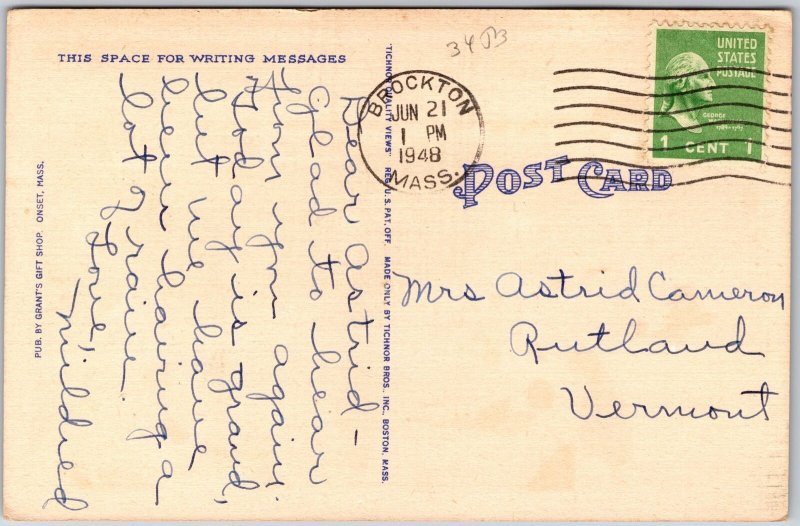 THIS SPACE FOR WRITING MESSAGES
Dear Astrid-
Glad to hear
from you again.
Today is grand,
but we have
been having a
lot of rain.
Love,
Mildred
PUB. BY GRANT'S GIFT SHOP. ONSET, MASS.
"TICHNOR QUALITY VIEWS" REG. U. S. PAT. OFF. MADE ONLY BY TICHNOR BROS., INC., BOSTON, MASS.
34 
BROCKTON
JUN 21
1 PM
1948
MASS.
UNITED
STATES
POSTAGE
GEORGE
1 CENT 1
POST CARD
Mrs Astrid Cameron
Rutland
Vermont